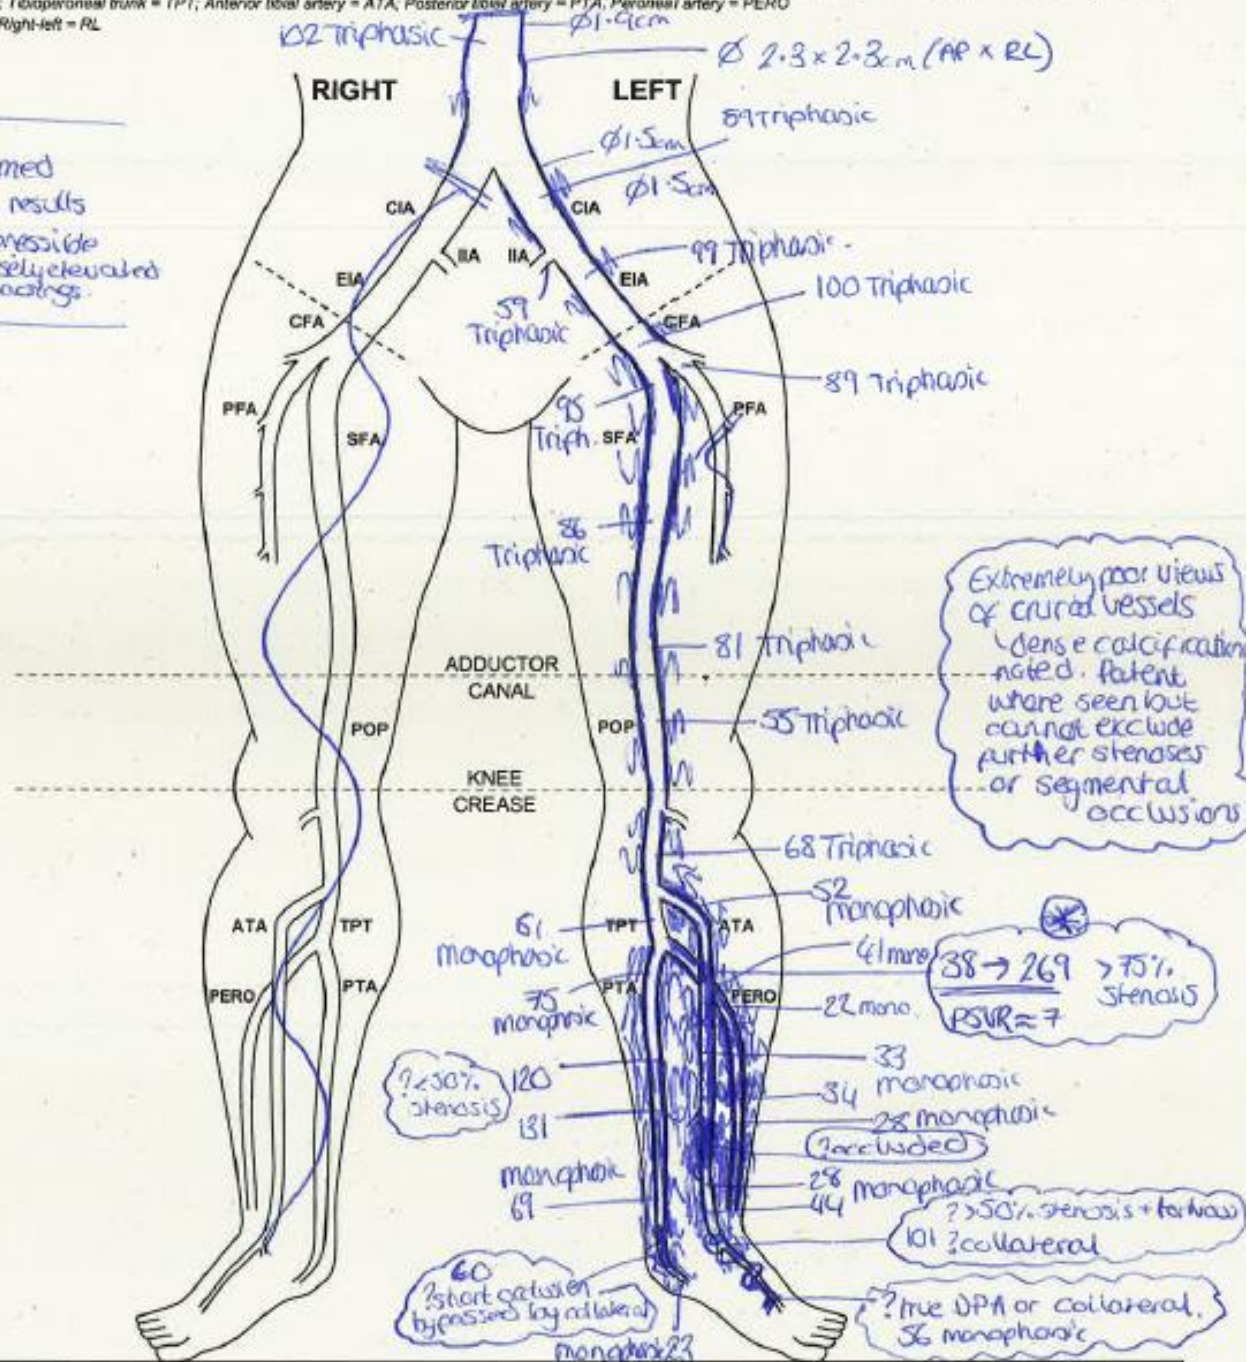 ; Tibioperoneal trunk = TPT; Anterior tibial artery = ATA; Posterior tibial artery = PTA; Peroneal artery = PERO
Right-left = RL
102 Triphasic
Ø1.9cm
Ø 2.3 x 2.3cm (AP x RL)
RIGHT
LEFT
89 Triphasic
Ø1.5cm
Ø1.5cm
med
results
pressible
sely elevated
CIA
CIA
99 Triphasic.
IIA
IIA
EIA
EIA
100 Triphasic
59
Triphasic
CFA
CFA
89 Triphasic
PFA
PFA
95
Triph.
SFA
SFA
86
Triphasic
Extremely poor views
of crural vessels
dense calcification
noted. Patent
where seen but
cannot exclude
further stenoses
or segmental
occlusions
81 Triphasic
ADDUCTOR
CANAL
POP
POP
55 Triphasic
KNEE
CREASE
68 Triphasic
52
monophasic
ATA
TPT
61
monophasic
TPT
ATA
41 mono
38 → 269 >75%
stenosis
PSVR ≈ 7
PERO
PTA
75
monophasic
PTA
PERO
22 mono.
33
monophasic
? <50%
stenosis
120
34
131
28 monophasic
? occluded
monophasic
69
28
monophasic
44
? >50% stenosis +
101 ? collateral
60
? short occlusion
bypassed by collateral
? true DPA or collateral.
56 monophasic
monophasic 23